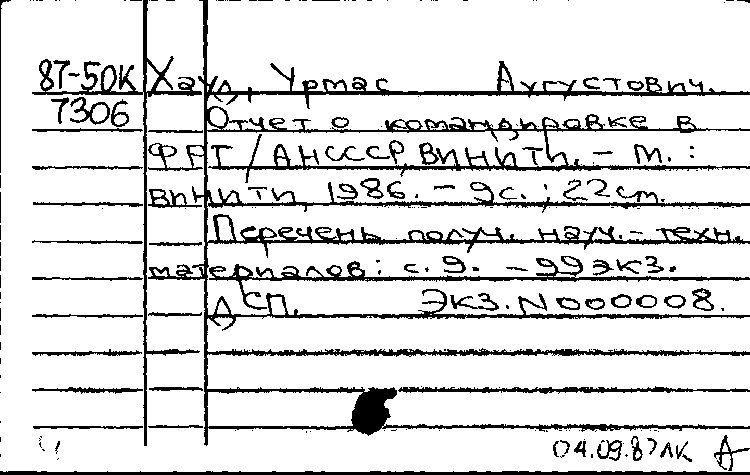 87-50К Хаул, Урмас Августович.
7306 Отчет о командировке в
ФРГ / АН СССР, ВИНИТИ. - М. :
ВИНИТИ, 1986. - 9 с. ; 22 см.
Перечень получ. науч.-техн.
материалов: с. 9. - 99 экз.
ДСП. Экз. N 000008.
04.09.87 ЛК